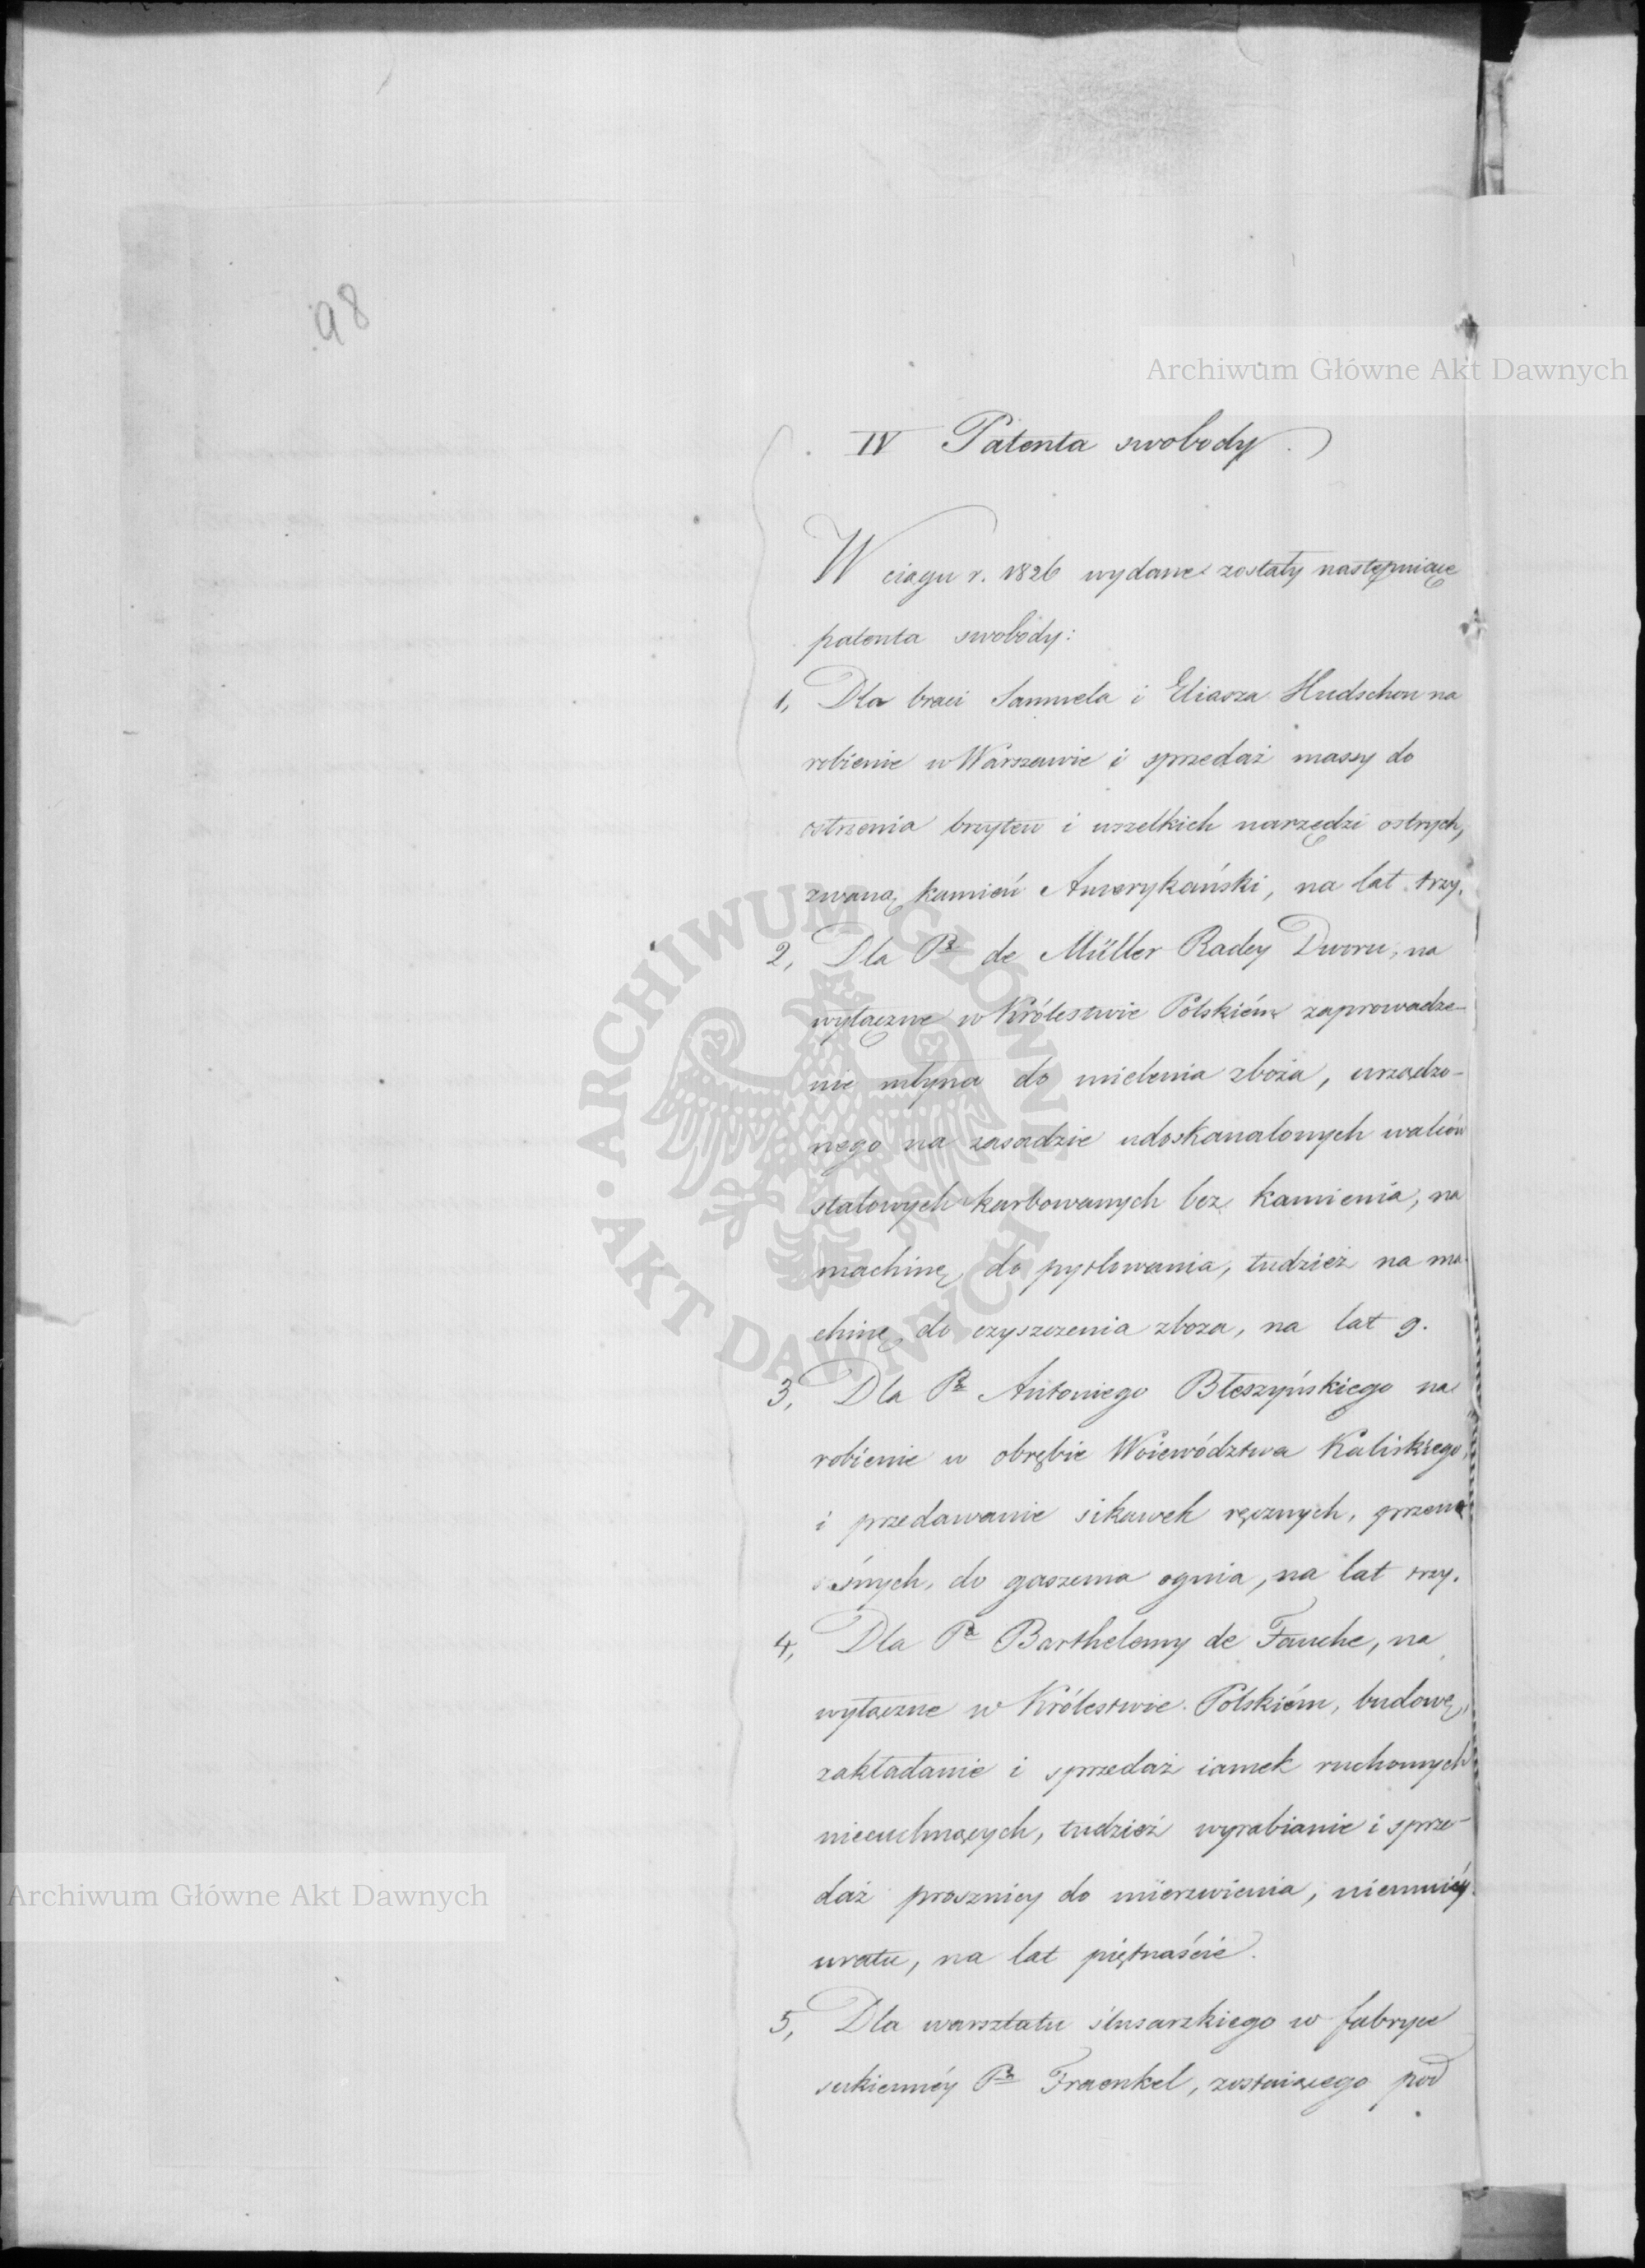 98
Archiwum Główne Akt Dawnych
IV Patenta swobody.
W ciągu r. 1826 wydane zostały następuiące
patenta swobody:
1, Dla braci Samuela i Eliasza Hudschon na
robienie w Warszawie i sprzedaż massy do
ostrzenia brzytew i wszelkich narzędzi ostrych,
zwaną kamień Amerykański, na lat trzy.
2, Dla Pa de Müller Radcy Dworu, na
wyłączne w Królestwie Polskiém zaprowadze-
nie młyna do mielenia zboża, urządzo-
nego na zasadzie udoskonalonych walców
stalowych karbowanych bez kamienia, na
machinę do pytlowania, tudzież na ma-
chinę do czyszczenia zboża, na lat 9.
3, Dla Pa Antoniego Błeszyńskiego na
robienie w obrębie Woiewództwa Kaliskiego
i przedawanie sikawek ręcznych, przeno
śnych, do gaszenia ognia, na lat trzy.
4, Dla Pa Barthelemy de Fauche, na
wyłączne w Królestwie Polskiém, budowę,
zakładanie i sprzedaż iamek ruchomych
niecuchnących, tudzież wyrabianie i sprze-
daż prosznicy do mierzwienia, niemniéy
uratu, na lat piętnaście.
5, Dla warsztatu ślusarskiego w fabryce
sukiennéy Pa Fraenkel, zostaiącego pod
ARCHIWUM GŁÓWNE AKT DAWNYCH
Archiwum Główne Akt Dawnych